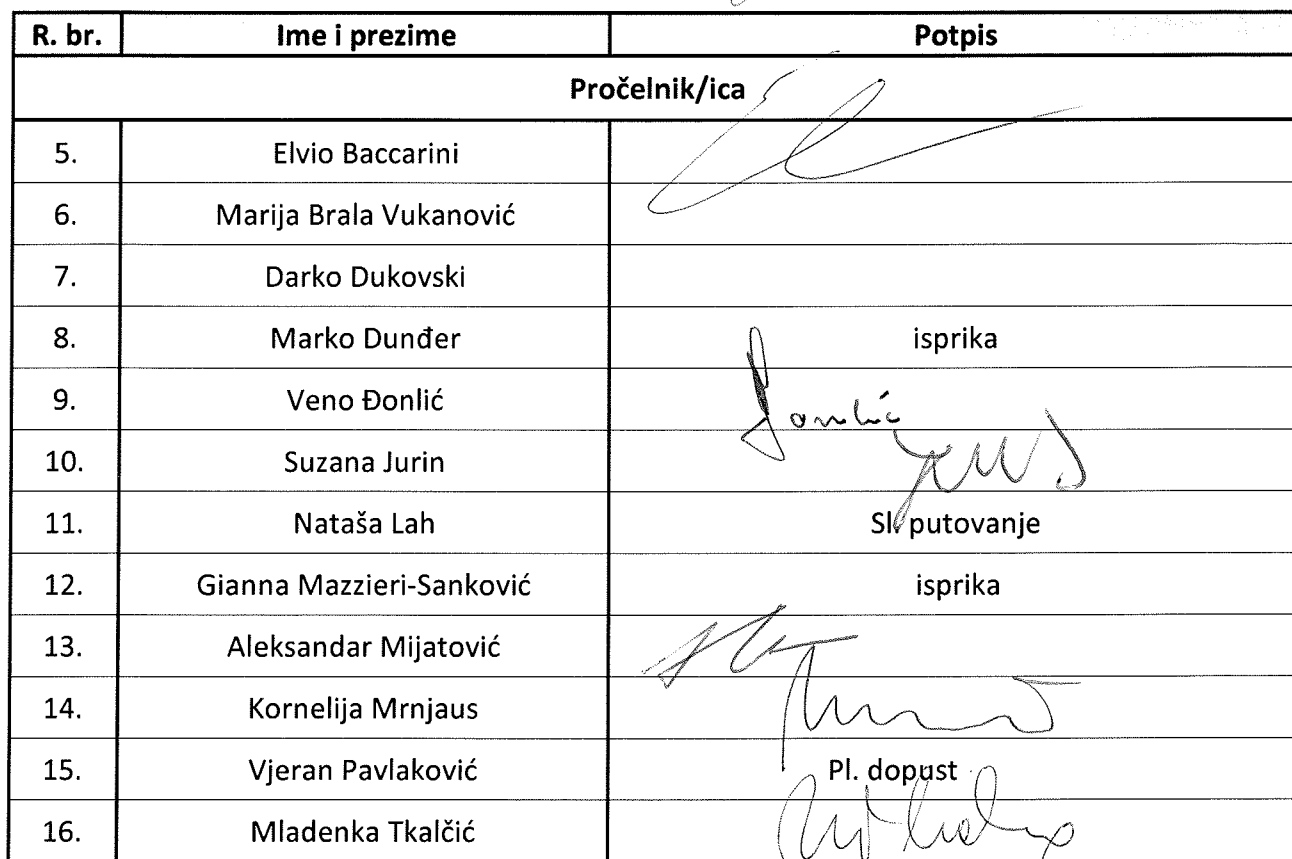 R. br. Ime i prezime Potpis
Pročelnik/ica
5. Elvio Baccarini
6. Marija Brala Vukanović
7. Darko Dukovski
8. Marko Dunđer isprika
9. Veno Đonlić Đonlić
10. Suzana Jurin
11. Nataša Lah Sl. putovanje
12. Gianna Mazzieri-Sanković isprika
13. Aleksandar Mijatović
14. Kornelija Mrnjaus
15. Vjeran Pavlaković Pl. dopust
16. Mladenka Tkalčić